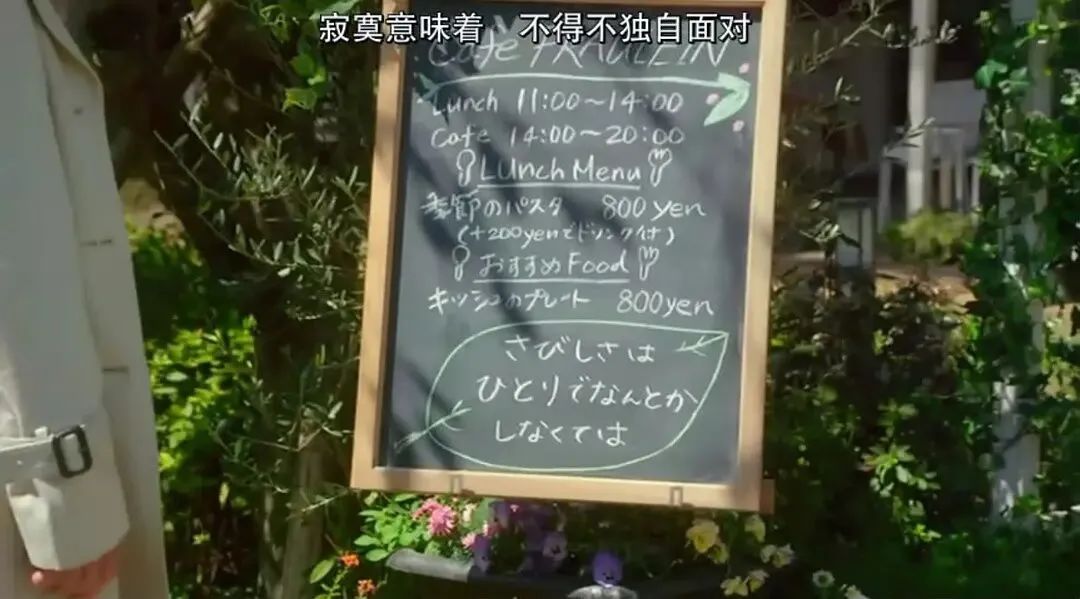 寂寞意味着 不得不独自面对
Cafe FRÄULEIN
Lunch 11:00~14:00
Cafe 14:00~20:00
Lunch Menu
季節のパスタ 800yen
(+200yenでドリンク付)
おすすめFood
キッシュのプレート 800yen
さびしさは
ひとりでなんとか
しなくては